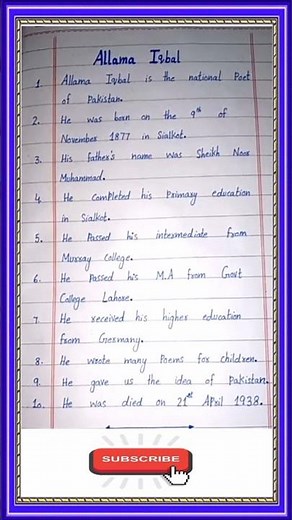 Allama Iqbal
1. Allama Iqbal is the national Poet
of Pakistan.
2. He was born on the 9th of
November 1877 in Sialkot.
3. His father's name was Sheikh Noor
Muhammad.
4. He completed his Primary education
in Sialkot.
5. He Passed his intermediate from
Murray College.
6. He Passed his M.A from Govt
College Lahore.
7. He received his higher education
from Germany.
8. He wrote many Poems for children.
9. He gave us the idea of Pakistan.
10. He was died on 21st April 1938.
SUBSCRIBE